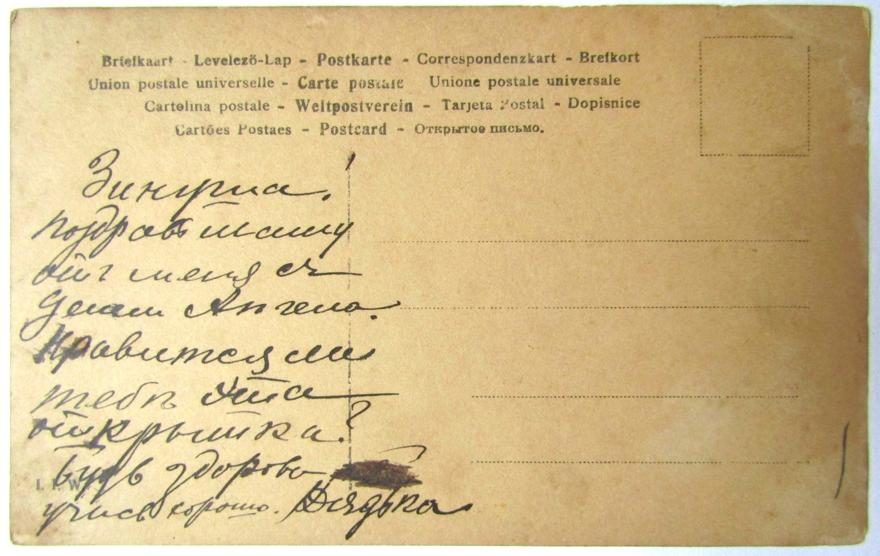 Briefkaart - Levelező-Lap - Postkarte - Correspondenzkart - Brefkort
Union postale universelle - Carte postale Unione postale universale
Cartolina postale - Weltpostverein - Tarjeta Postal - Dopisnice
Cartões Postaes - Postcard - Открытое письмо.
поздравь
отъ меня съ
Днемъ Ангела.
Нравится ли
тебѣ эта
открытка?
Будь здорова
учись хорошо. Дядька